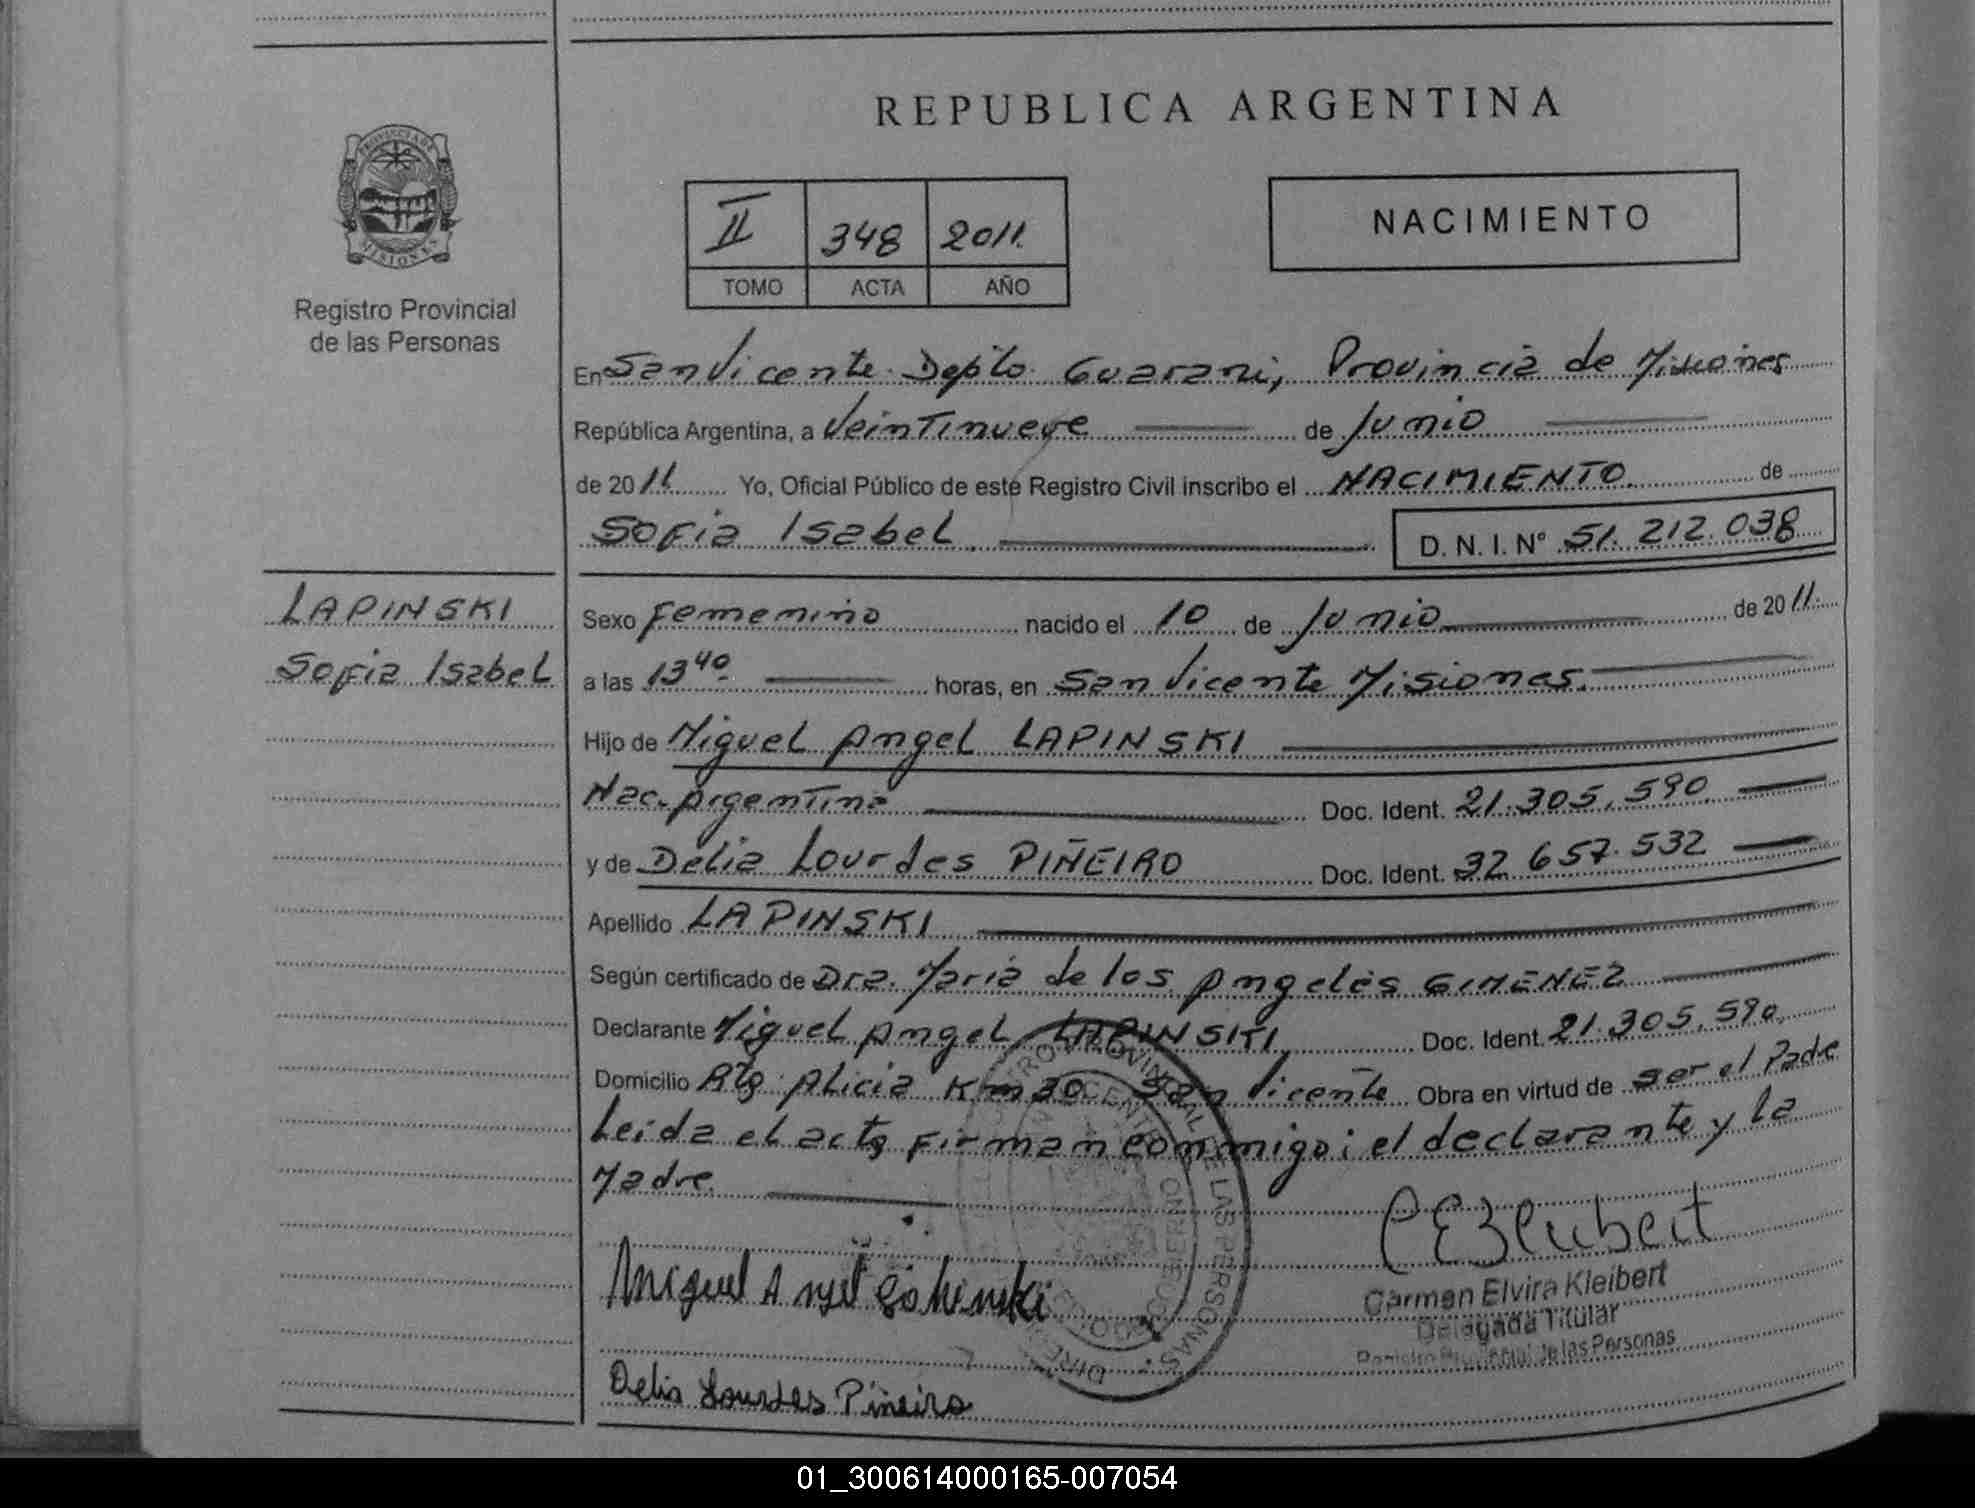 REPUBLICA ARGENTINA
PROVINCIA DE
MISIONES
Registro Provincial
de las Personas
II 348 2011.
TOMO ACTA AÑO
NACIMIENTO
En San Vicente Depto Guarani, Provincia de Misiones
República Argentina, a Veintinueve de Junio
de 2011 Yo, Oficial Público de este Registro Civil inscribo el NACIMIENTO. de
Sofia Isabel D. N. I. N° 51.212.038
LAPINSKI
Sofia Isabel
Sexo Femenino nacido el 10 de Junio de 2011.
a las 13 40 horas, en San Vicente Misiones.
Hijo de Miguel Angel LAPINSKI
Nac. Argentina Doc. Ident. 21.305.590
y de Delia Lourdes PIÑEIRO Doc. Ident. 32 657.532
Apellido LAPINSKI
Según certificado de Dra. Maria de los Angeles GIMENEZ
Declarante Miguel Angel LAPINSKI Doc. Ident. 21.305.590
Domicilio Rta Alicia Km 30 San Vicente Obra en virtud de ser el Padre
Leida el acta Firman conmigo: el declarante y La
Madre.
Miguel Angel
Delia Lourdes Piñeiro
Carmen Elvira Kleibert
Delegada Titular
Registro Provincial de las Personas
01_300614000165-007054